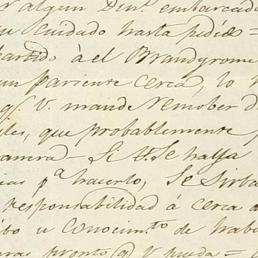 r algun Dinº embarcado
su cuidado hasta pidió =
partido à el Brandyrome
un pariente cerca, lo
q̃ V. mande remober d
les, que probablemente
camera - Si V. Se halla
pª hacerlo, Se Sirba
responsabilidad à cerca d
ibo u conocimtº de haber
pronto q̃ V pueda =